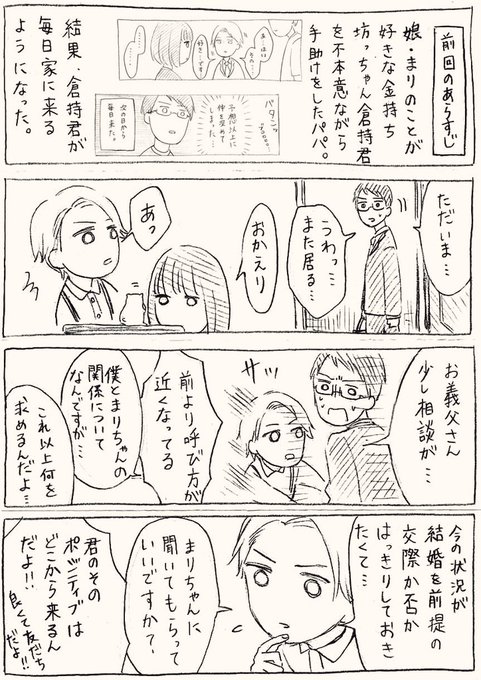 前回のあらすじ
娘・まりのことが
好きな金持ち
坊っちゃん倉持君
を不本意ながら
手助けをしたパパ。
結果・倉持君が
毎日家に来る
ようになった。
あ…はい
好き…です…
パタン…
予想以上に
仲を深めて
しまった…
次の日から
毎日来た。
ただいま…
うわっ…
また居る…
おかえり
あっ
お義父さん
少し相談が…
サッ
前より呼び方が
近くなってる
僕とまりちゃんの
関係について
なんですが…
これ以上何を
求めるんだよ…
今の状況が
結婚を前提の
交際か否か
はっきりしておき
たくて…
まりちゃんに
聞いてもらって
いいですか？
君のその
ポジティブは
どこから来るん
だよ!!
良くて友だち
だよ!!